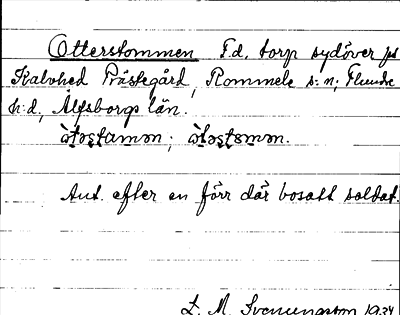 Otterstommen F.d. torp sydöver på
Kalvhed Prästegård, Rommele s:n, Flundre
h:d, Älfsborgs län.
Ant. efter en förr där bosatt soldat.
L. M. Svenungsson 1934